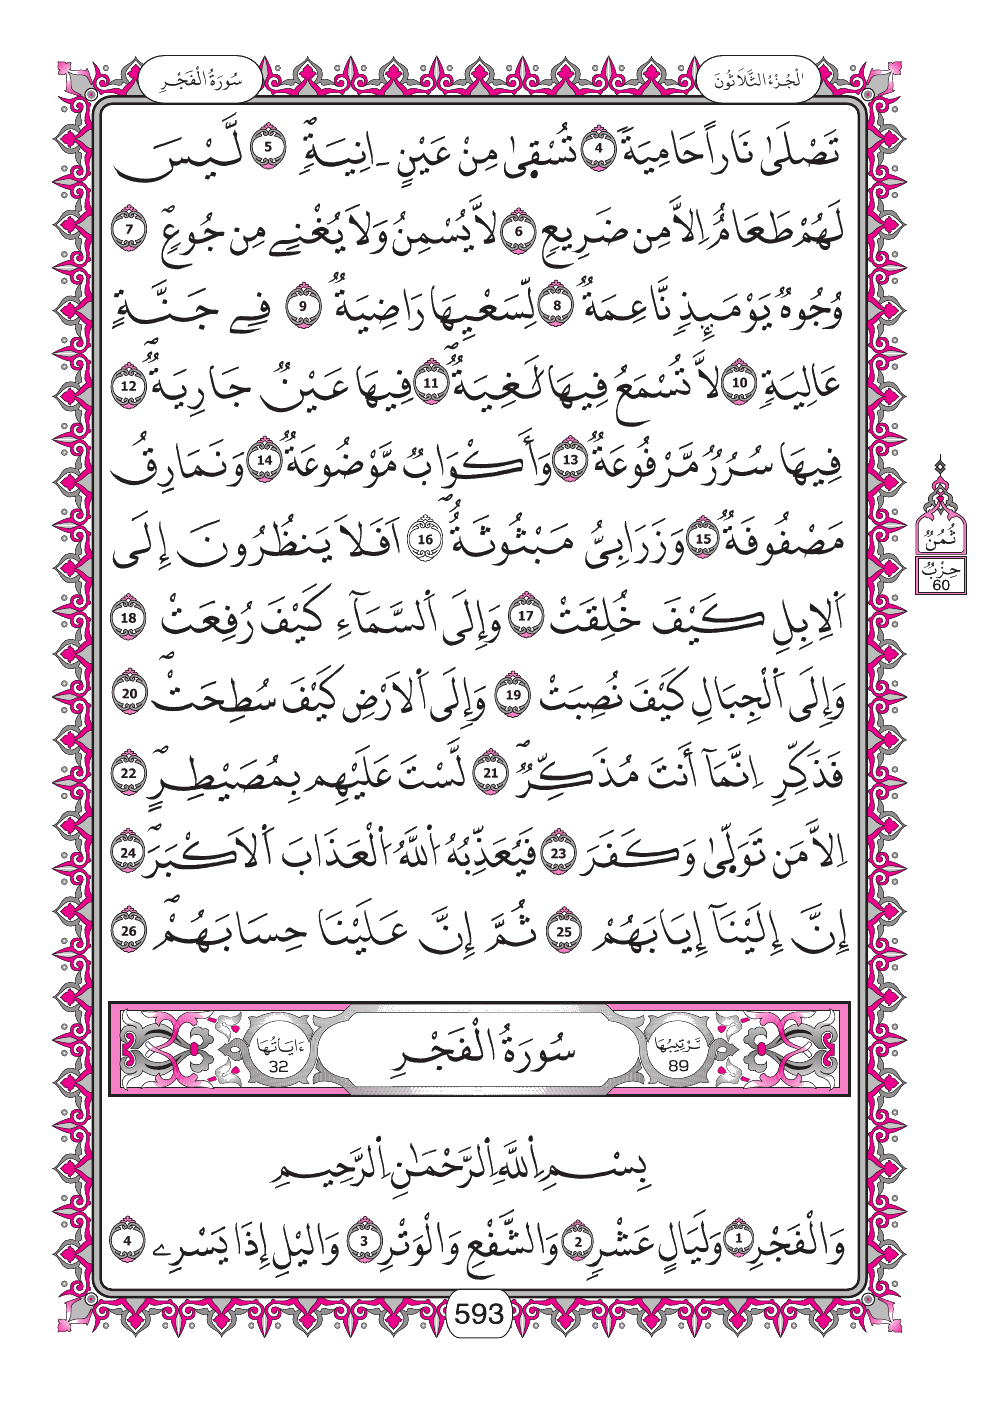 سُورَةُ الْفَجْرِ
الْجُزْءُ الثَّلَاثُونَ
تَصْلَىٰ نَاراً حَامِيَةً 4 تُسْقِىٰ مِنْ عَيْنٍ ـاٰنِيَةٍ 5 لَّيْسَ
لَهُمْ طَعَامٌ اِلاَّ مِن ضَرِيعٍ 6 لاَّ يُسْمِنُ وَلاَ يُغْنِے مِن جُوعٍ 7
وُجُوهٌ يَوْمَئِذٍ نَّاعِمَةٌ 8 لِّسَعْيِهَا رَاضِيَةٌ 9 فِے جَنَّةٍ
عَالِيَةٍ 10 لاَّ تُسْمَعُ فِيهَا لَٰغِيَةٌ 11 فِيهَا عَيْنٌ جَارِيَةٌ 12
فِيهَا سُرُرٌ مَّرْفُوعَةٌ 13 وَأَكْوَابٌ مَّوْضُوعَةٌ 14 وَنَمَارِقُ
مَصْفُوفَةٌ 15 وَزَرَابِىُّ مَبْثُوثَةٌ 16 اَفَلاَ يَنظُرُونَ إِلَى
اَلِابِلِ كَيْفَ خُلِقَتْ 17 وَإِلَى اَلسَّمَآءِ كَيْفَ رُفِعَتْ 18
وَإِلَى اَلْجِبَالِ كَيْفَ نُصِبَتْ 19 وَإِلَى اَلَارْضِ كَيْفَ سُطِحَتْ 20
فَذَكِّرِ اِنَّمَآ أَنتَ مُذَكِّرٌ 21 لَّسْتَ عَلَيْهِم بِمُصَيْطِرٍ 22
اِلاَّ مَن تَوَلِّىٰ وَكَفَرَ 23 فَيُعَذِّبُهُ اُللَّهُ اُلْعَذَابَ اَلَاكْبَرَ 24
إِنَّ إِلَيْنَآ إِيَابَهُمْ 25 ثُمَّ إِنَّ عَلَيْنَا حِسَابَهُمْ 26
ثُمُنٌ
حِزْبٌ
60
تَرْتِيبُهَا
89
سُورَةُ الْفَجْرِ
ءَايَاتُهَا
32
بِسْمِ اِللَّهِ اِلرَّحْمَٰنِ اِلرَّحِيمِ
وَالْفَجْرِ 1 وَلَيَالٍ عَشْرٍ 2 وَالشَّفْعِ وَالْوَتْرِ 3 وَاليْلِ إِذَا يَسْرِے 4
593